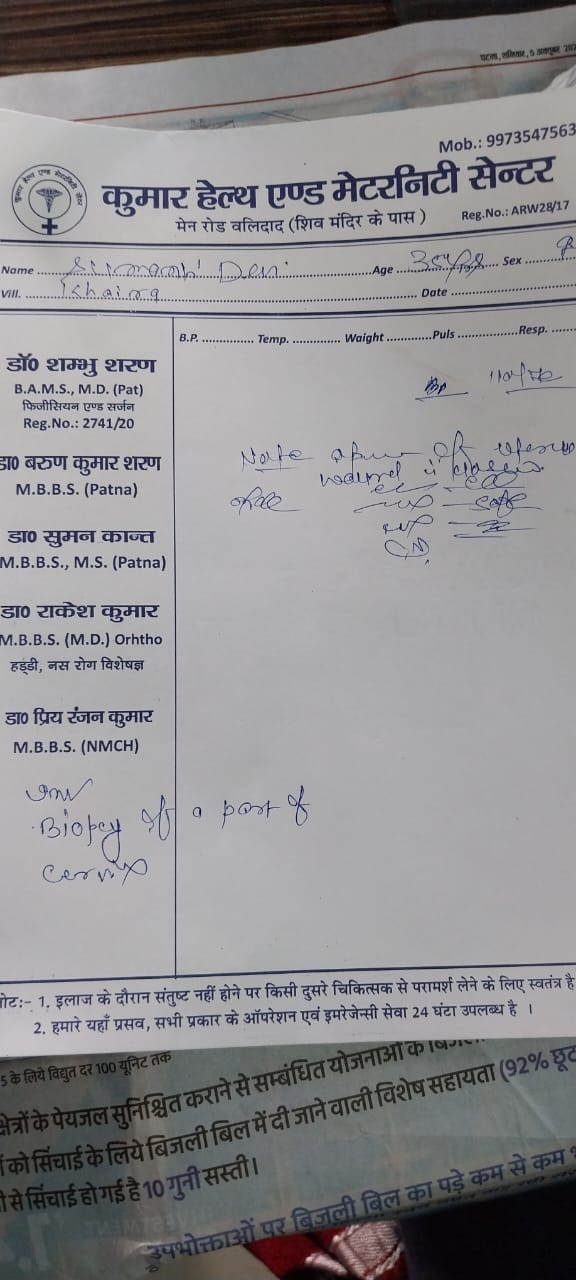 पटना, शनिवार, 5 अक्तूबर
Mob.: 9973547563
कुमार हेल्थ एण्ड मेटरनिटी सेन्टर
मेन रोड वलिदाद (शिव मंदिर के पास)
Reg.No.: ARW28/17
Name Devi Age Sex
Vill. Khaira Date
B.P. Temp. Waight Puls Resp.
डॉ० शम्भु शरण
B.A.M.S., M.D. (Pat)
फिजीसियन एण्ड सर्जन
Reg.No.: 2741/20
डा० बरुण कुमार शरण
M.B.B.S. (Patna)
Note of uterus
डा० सुमन कान्त
M.B.B.S., M.S. (Patna)
डा० राकेश कुमार
M.B.B.S. (M.D.) Orhtho
हड्डी, नस रोग विशेषज्ञ
डा० प्रिय रंजन कुमार
M.B.B.S. (NMCH)
Biopcy of a part of
cervix
नोट:- 1. इलाज के दौरान संतुष्ट नहीं होने पर किसी दुसरे चिकित्सक से परामर्श लेने के लिए स्वतंत्र है
2. हमारे यहाँ प्रसव, सभी प्रकार के ऑपरेशन एवं इमरेजेन्सी सेवा 24 घंटा उपलब्ध है ।
5 के लिये विद्युत दर 100 यूनिट तक
क्षेत्रों के पेयजल सुनिश्चित कराने से सम्बंधित योजनाओं के
को सिंचाई के लिये बिजली बिल में दी जाने वाली विशेष सहायता (92% छूट
से सिंचाई हो गई है 10 गुनी सस्ती।
उपभोक्ताओं पर बिजली बिल का पड़े कम से कम